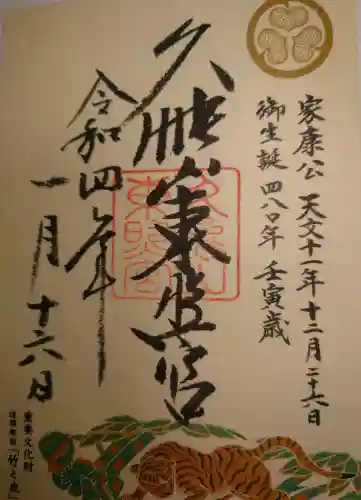 家康公 天文十一年十二月二十六日
御生誕四八〇年 壬寅歳
久能山東照宮
令和四年
一月十六日
重要文化財
「竹と虎」